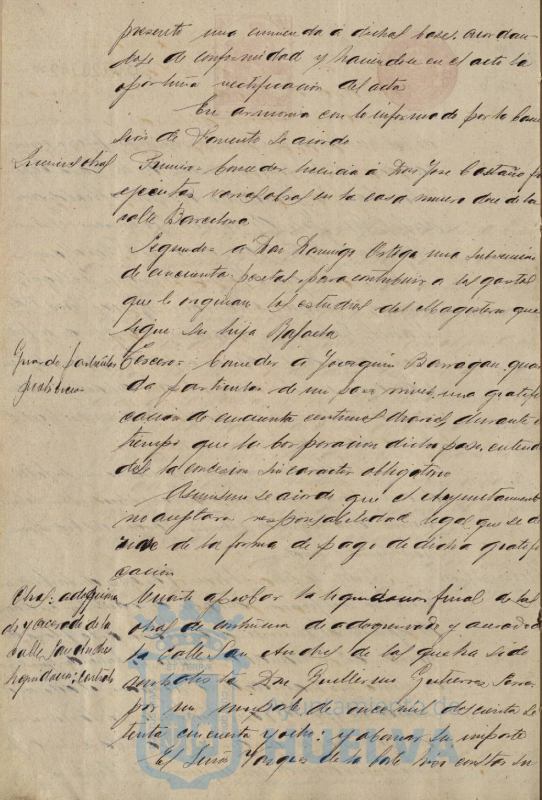 presento una enmienda á dichas bases, acordan-
dose de conformidad y haciendose en el acto la
oportuna rectificacion del acta
En armonia con lo informado por la Comi
sion de Fomento se acordo
Licencias obras
Primero: Conceder licencia á Don José Castaño
ejecutar varias obras en la casa numero doce de la
calle Barcelona
Segundo: a Don Domingo Ortega una subvencion
de cincuenta pesetas para contribuir a los gastos
que le originan los estudios del Magisterio que
sigue su hija Rafaela
Guarda particular
Tercero: Conceder a Joaquin Barragan, guar
da particular de una gratifi
cacion de cincuenta centimos diarios durante el
tiempo que la Corporacion dicho pase, entend
dose la concesion sin caracter obligatorio
Asimismo se acordo que el Ayuntamiento
no aceptara responsabilidad legal que se de
rive de la forma de pago de dicha gratifi
cacion
Obras: adoquina
do y acerado de la
calle San Andres
liquidacion; contrata
Cuarto aprobar la liquidacion final de las
obras de adoquinado y acerado
la calle San Andres de las que ha sido
contratista Don Guillermo Gutierrez
por un importe de once mil doscientas se
tenta cincuenta y ocho: y abonar su importe
El Señor Vazquez de la hizo constar su
AYUNTAMIENTO DE
HUELVA